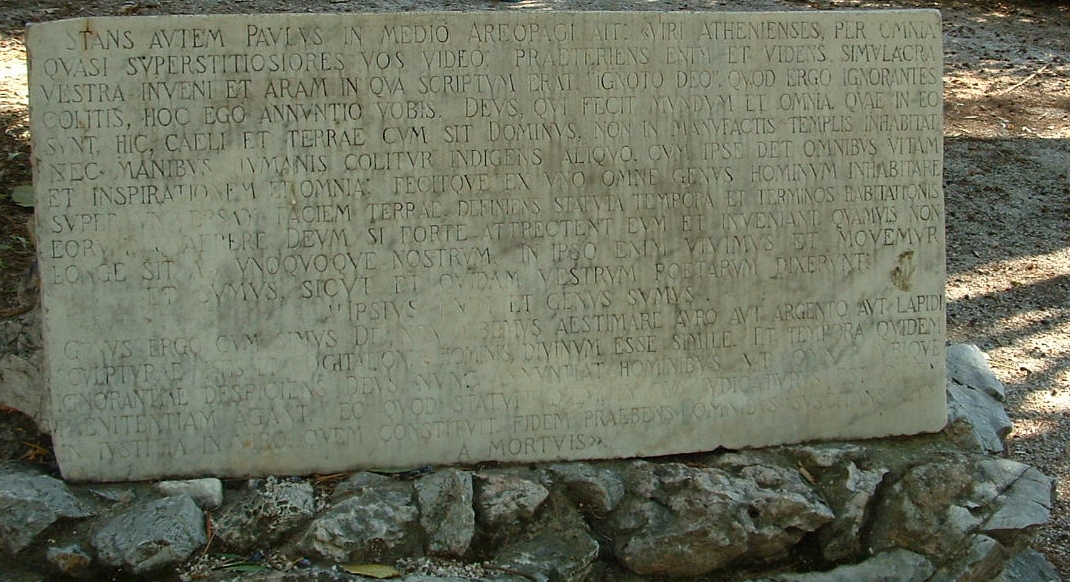 STANS AVTEM PAVLVS IN MEDIO AREOPAGI AIT: «VIRI ATHENIENSES, PER OMNIA
QVASI SVPERSTITIOSIORES VOS VIDEO. PRAETERIENS ENIM ET VIDENS SIMVLACRA
VESTRA INVENI ET ARAM IN QVA SCRIPTVM ERAT: "IGNOTO DEO". QVOD ERGO IGNORANTES
COLITIS, HOC EGO ANNVNTIO VOBIS. DEVS, QVI FECIT MVNDVM ET OMNIA, QVAE IN EO
SVNT, HIC, CAELI ET TERRAE CVM SIT DOMINVS, NON IN MANVFACTIS TEMPLIS INHABITAT,
NEC MANIBVS HVMANIS COLITVR INDIGENS ALIQVO, CVM IPSE DET OMNIBVS VITAM
ET INSPIRATIONEM ET OMNIA; FECITQVE EX VNO OMNE GENVS HOMINVM INHABITARE
SVPER FACIEM TERRAE, DEFINIENS STATVTA TEMPORA ET TERMINOS HABITATIONIS
DEVM SI FORTE ATTRECTENT EVM ET INVENIANT, QVAMVIS NON
LONGE SIT VNOQVOQVE NOSTRVM. IN IPSO ENIM VIVIMVS ET MOVEMVR
ET SVMVS, SICVT ET QVIDAM VESTRVM POETARVM DIXERVNT:
"IPSIVS ET GENVS SVMVS".
ERGO CVM AESTIMARE AVRO AVT ARGENTO AVT LAPIDI
HOMINIS DIVINVM ESSE SIMILE. ET TEMPORA QVIDEM
IGNORANTIAE DESPICIENS DEVS NVNC HOMINIBVS VT
PAENITENTIAM AGANT EO QVOD STATVIT
IN VIRO QVEM CONSTITVIT FIDEM PRAEBENS OMNIBVS
A MORTVIS».